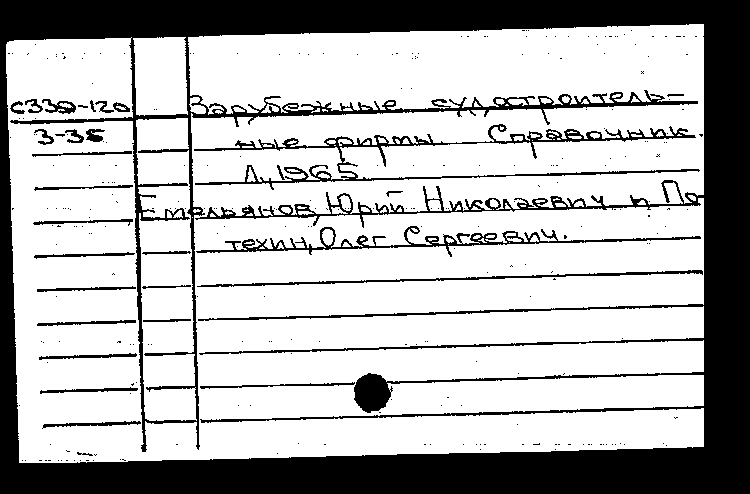 С330-120 Зарубежные судостроитель-
3-35 ные фирмы. Справочник.
Л., 1965.
Емельянов, Юрий Николаевич и По-
техин, Олег Сергеевич.